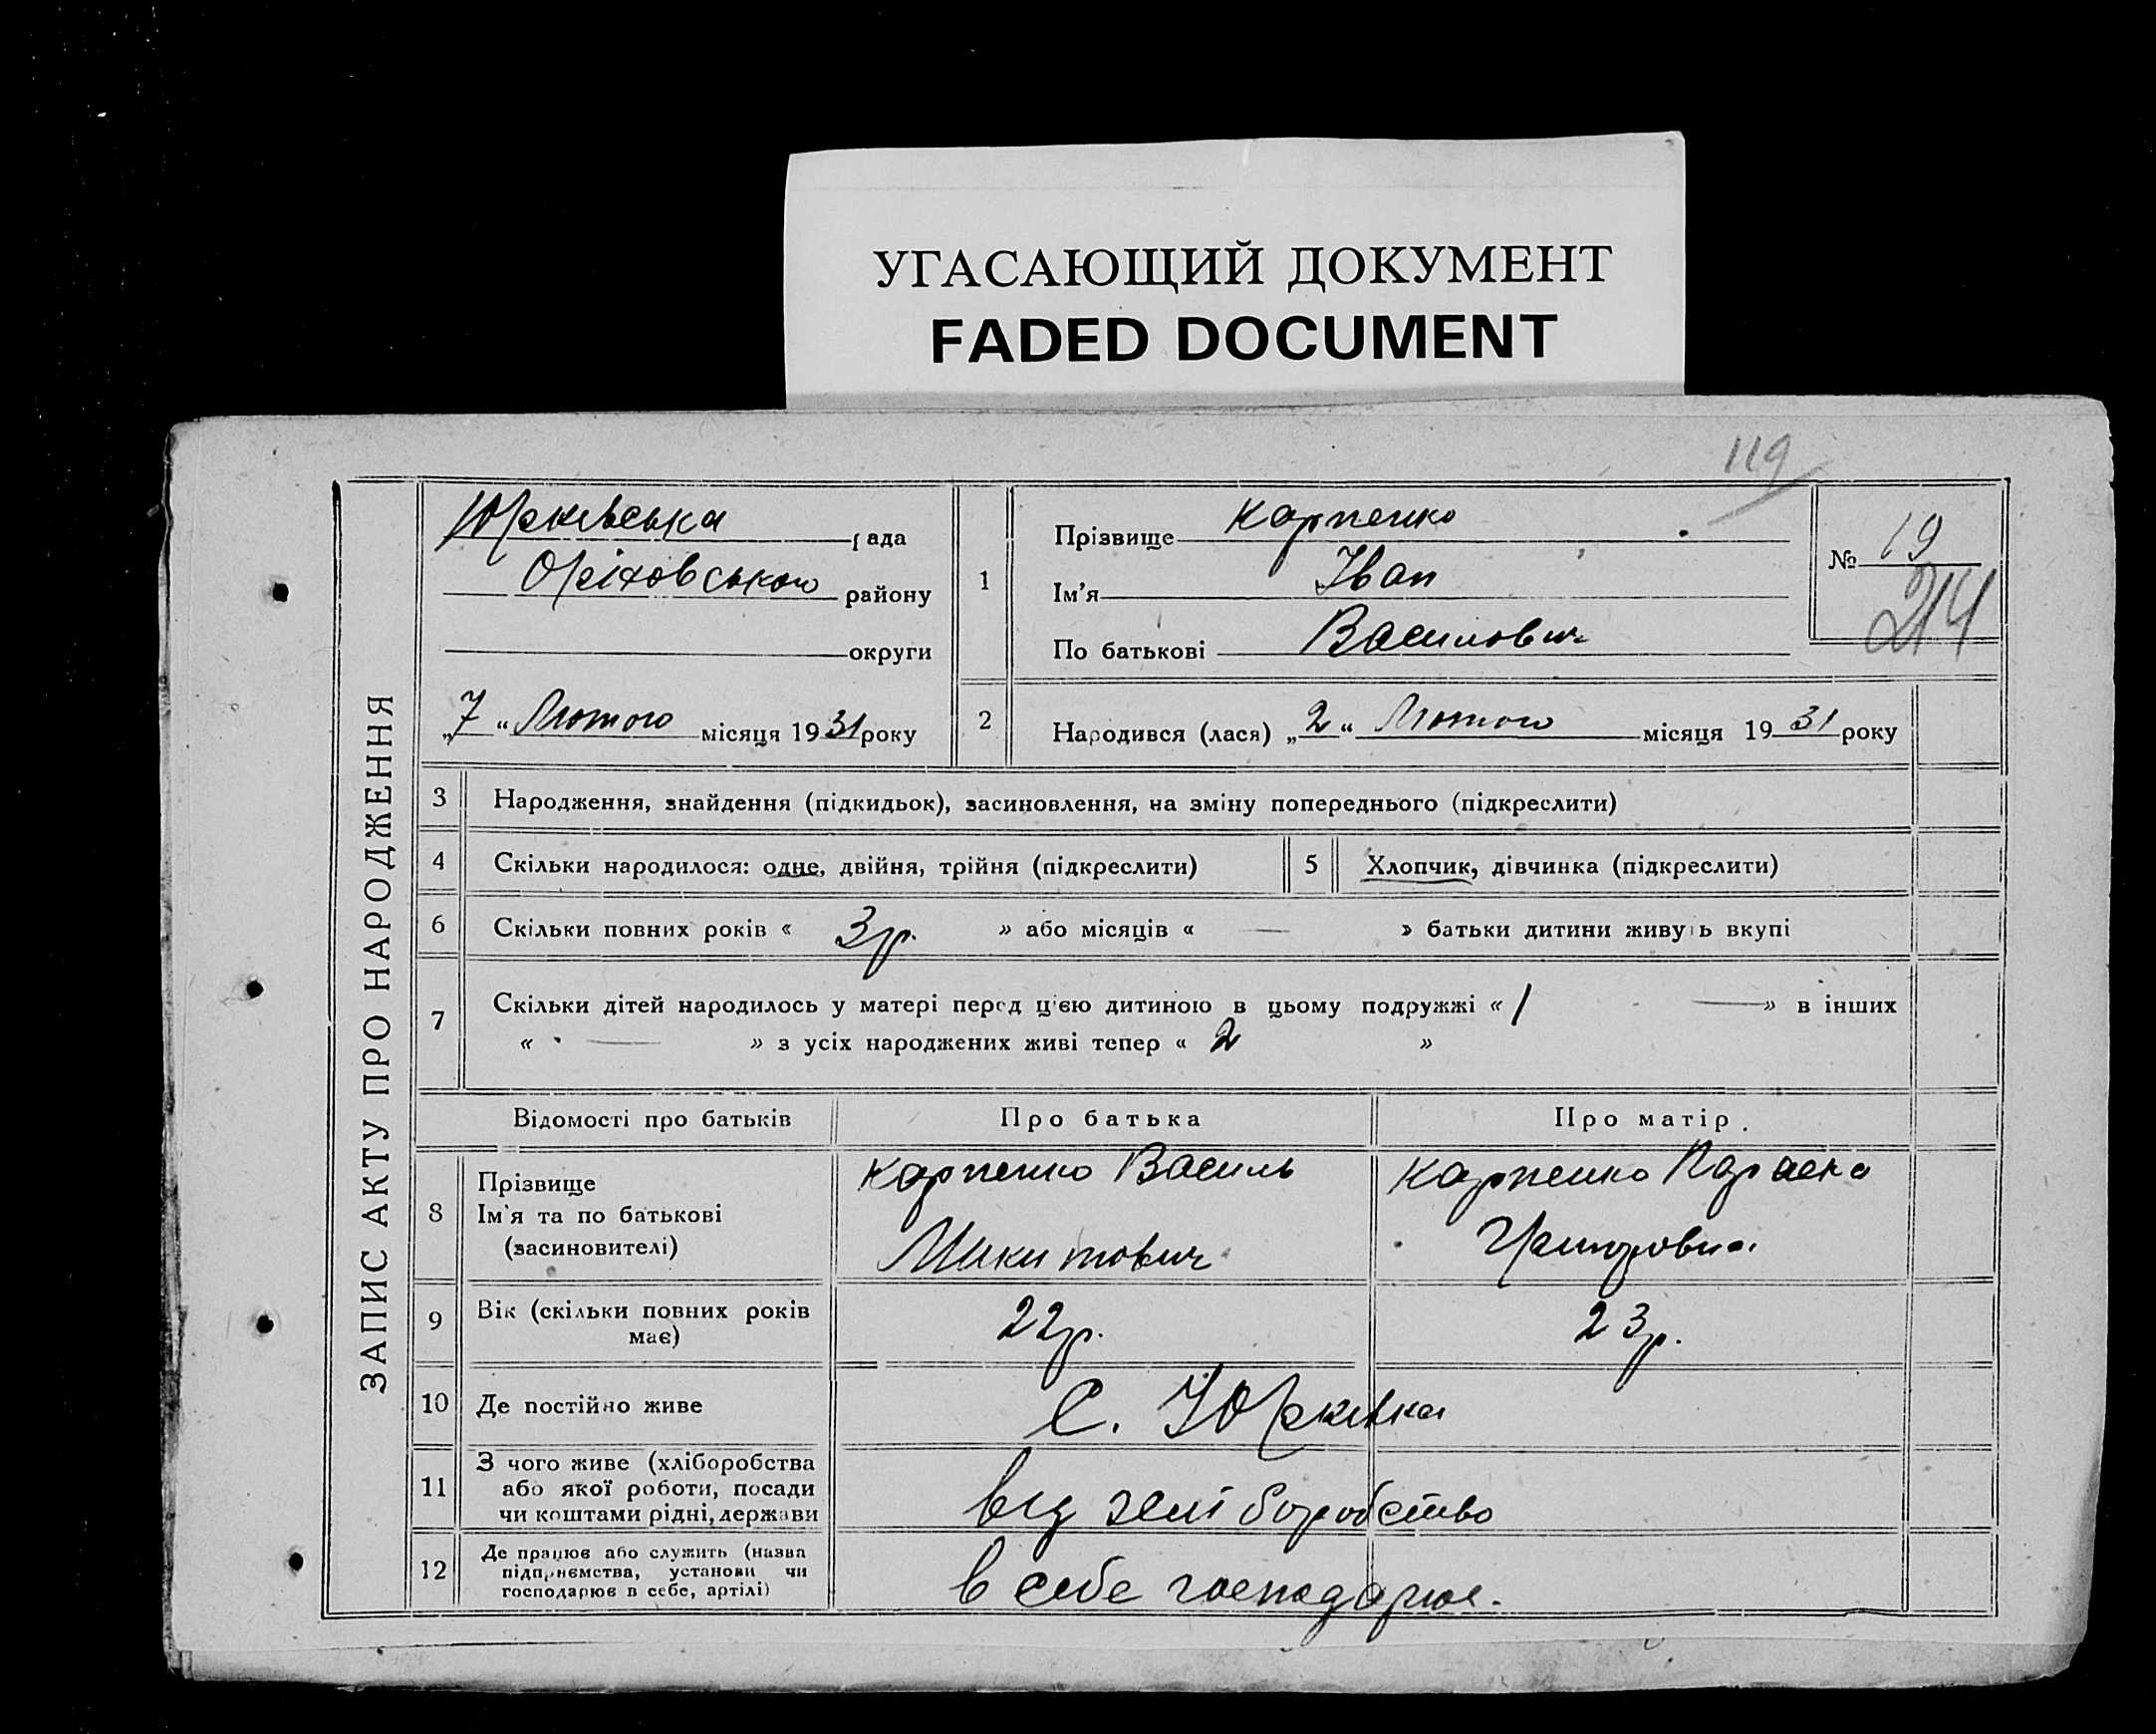 УГАСАЮЩИЙ ДОКУМЕНТ
FADED DOCUMENT
119
ЗАПИС АКТУ ПРО НАРОДЖЕННЯ
Юрківська рада
Оріховського району
округи
„7“ Лютого місяця 1931 року
1
Прізвище Карпенко
Ім'я Іван
По батькові Василович
№ 19
214
2 Народився (лася) „2“ Лютого місяця 1931 року
3 Народження, знайдення (підкидьок), засиновлення, на зміну попереднього (підкреслити)
4 Скільки народилося: одне, двійня, трійня (підкреслити) 5 Хлопчик, дівчинка (підкреслити)
6 Скільки повних років « 3 р. » або місяців « — » батьки дитини живуть вкупі
7 Скільки дітей народилось у матері перед цією дитиною в цьому подружжі « 1 — » в інших
« — » з усіх народжених живі тепер « 2 »
Відомості про батьків Про батька Про матір
8 Прізвище
Ім'я та по батькові
(засиновителі)
Карпенко Василь
Микитович
Карпенко Параска
9 Вік (скільки повних років
має)
22 р. 23 р.
10 Де постійно живе с. Юрківка
11 З чого живе (хліборобства
або якої роботи, посади
чи коштами рідні, держави
від земі боробство
12 Де працює або служить (назва
підприємства, установи чи
господарює в себе, артілі)
в себе господарює.